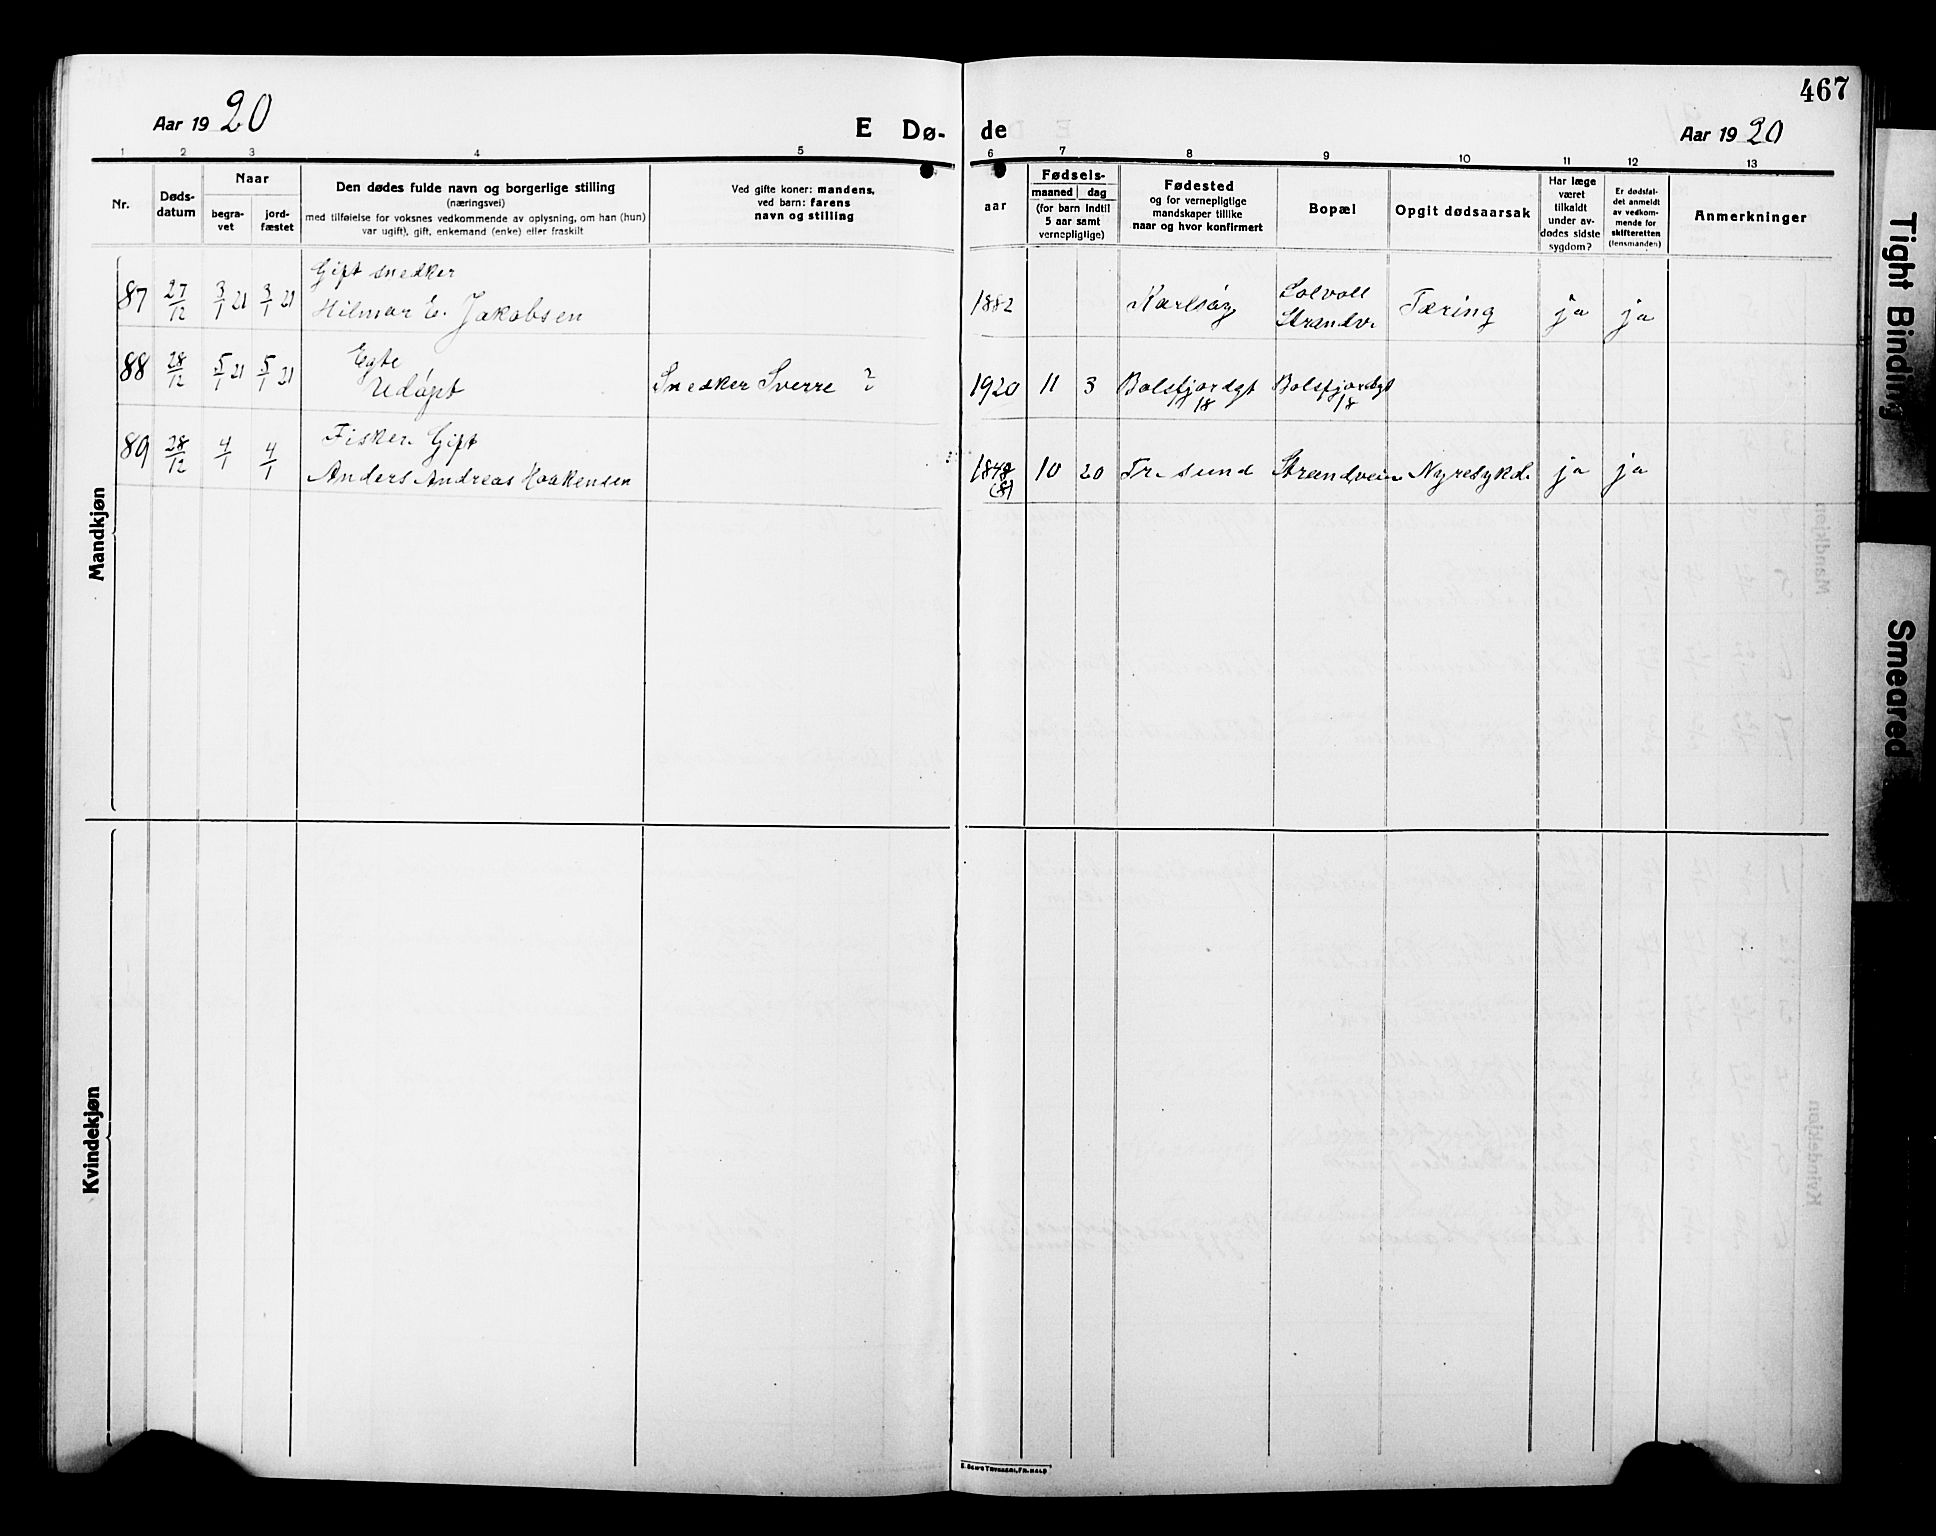 467
Aar 1920
E Dø-
de
Aar 1920
1 2 3 4 5 6 7 8 9 10 11 12 13
Nr.
Døds-
datum
Naar
begra-
vet
jord-
fæstet
Den dødes fulde navn og borgerlige stilling
(næringsvei)
med tilføielse for voksnes vedkommende av oplysning, om han (hun)
var ugift), gift, enkemand (enke) eller fraskilt
Ved gifte koner: mandens,
ved barn: farens
navn og stilling
aar
Fødsels-
maaned dag
(for barn indtil
5 aar samt
vernepligtige)
Fødested
og for vernepligtige
mandskaper tillike
naar og hvor konfirmert
Bopæl
Opgit dødsaarsak
Har læge
været
tilkaldt
under av-
dødes sidste
sygdom?
Er dødsfal-
det anmeldt
av vedkom-
mende for
skifteretten
(lensmanden)
Anmerkninger
Mandkjøn
87 27/12 3/1 21 3/1 21
Gift snedker
Hilmar E. Jakobsen
1882
Karlsøy
Solvoll
Strandv.
Tæring
ja ja
88 28/12 5/1 21 5/1 21
Egte
Udøpt
Snedker Sverre ?
1920 11 3
Balsfjordgt
18
Balsfjordgt
18
89 28/12 4/1 4/1
Fisker. Gift
Anders Andreas Haakensen
1848
(8)
10 20
Tr. sund
Strandveien
Nyresykd.
ja ja
Kvindekjøn
Tight Binding
Smeared